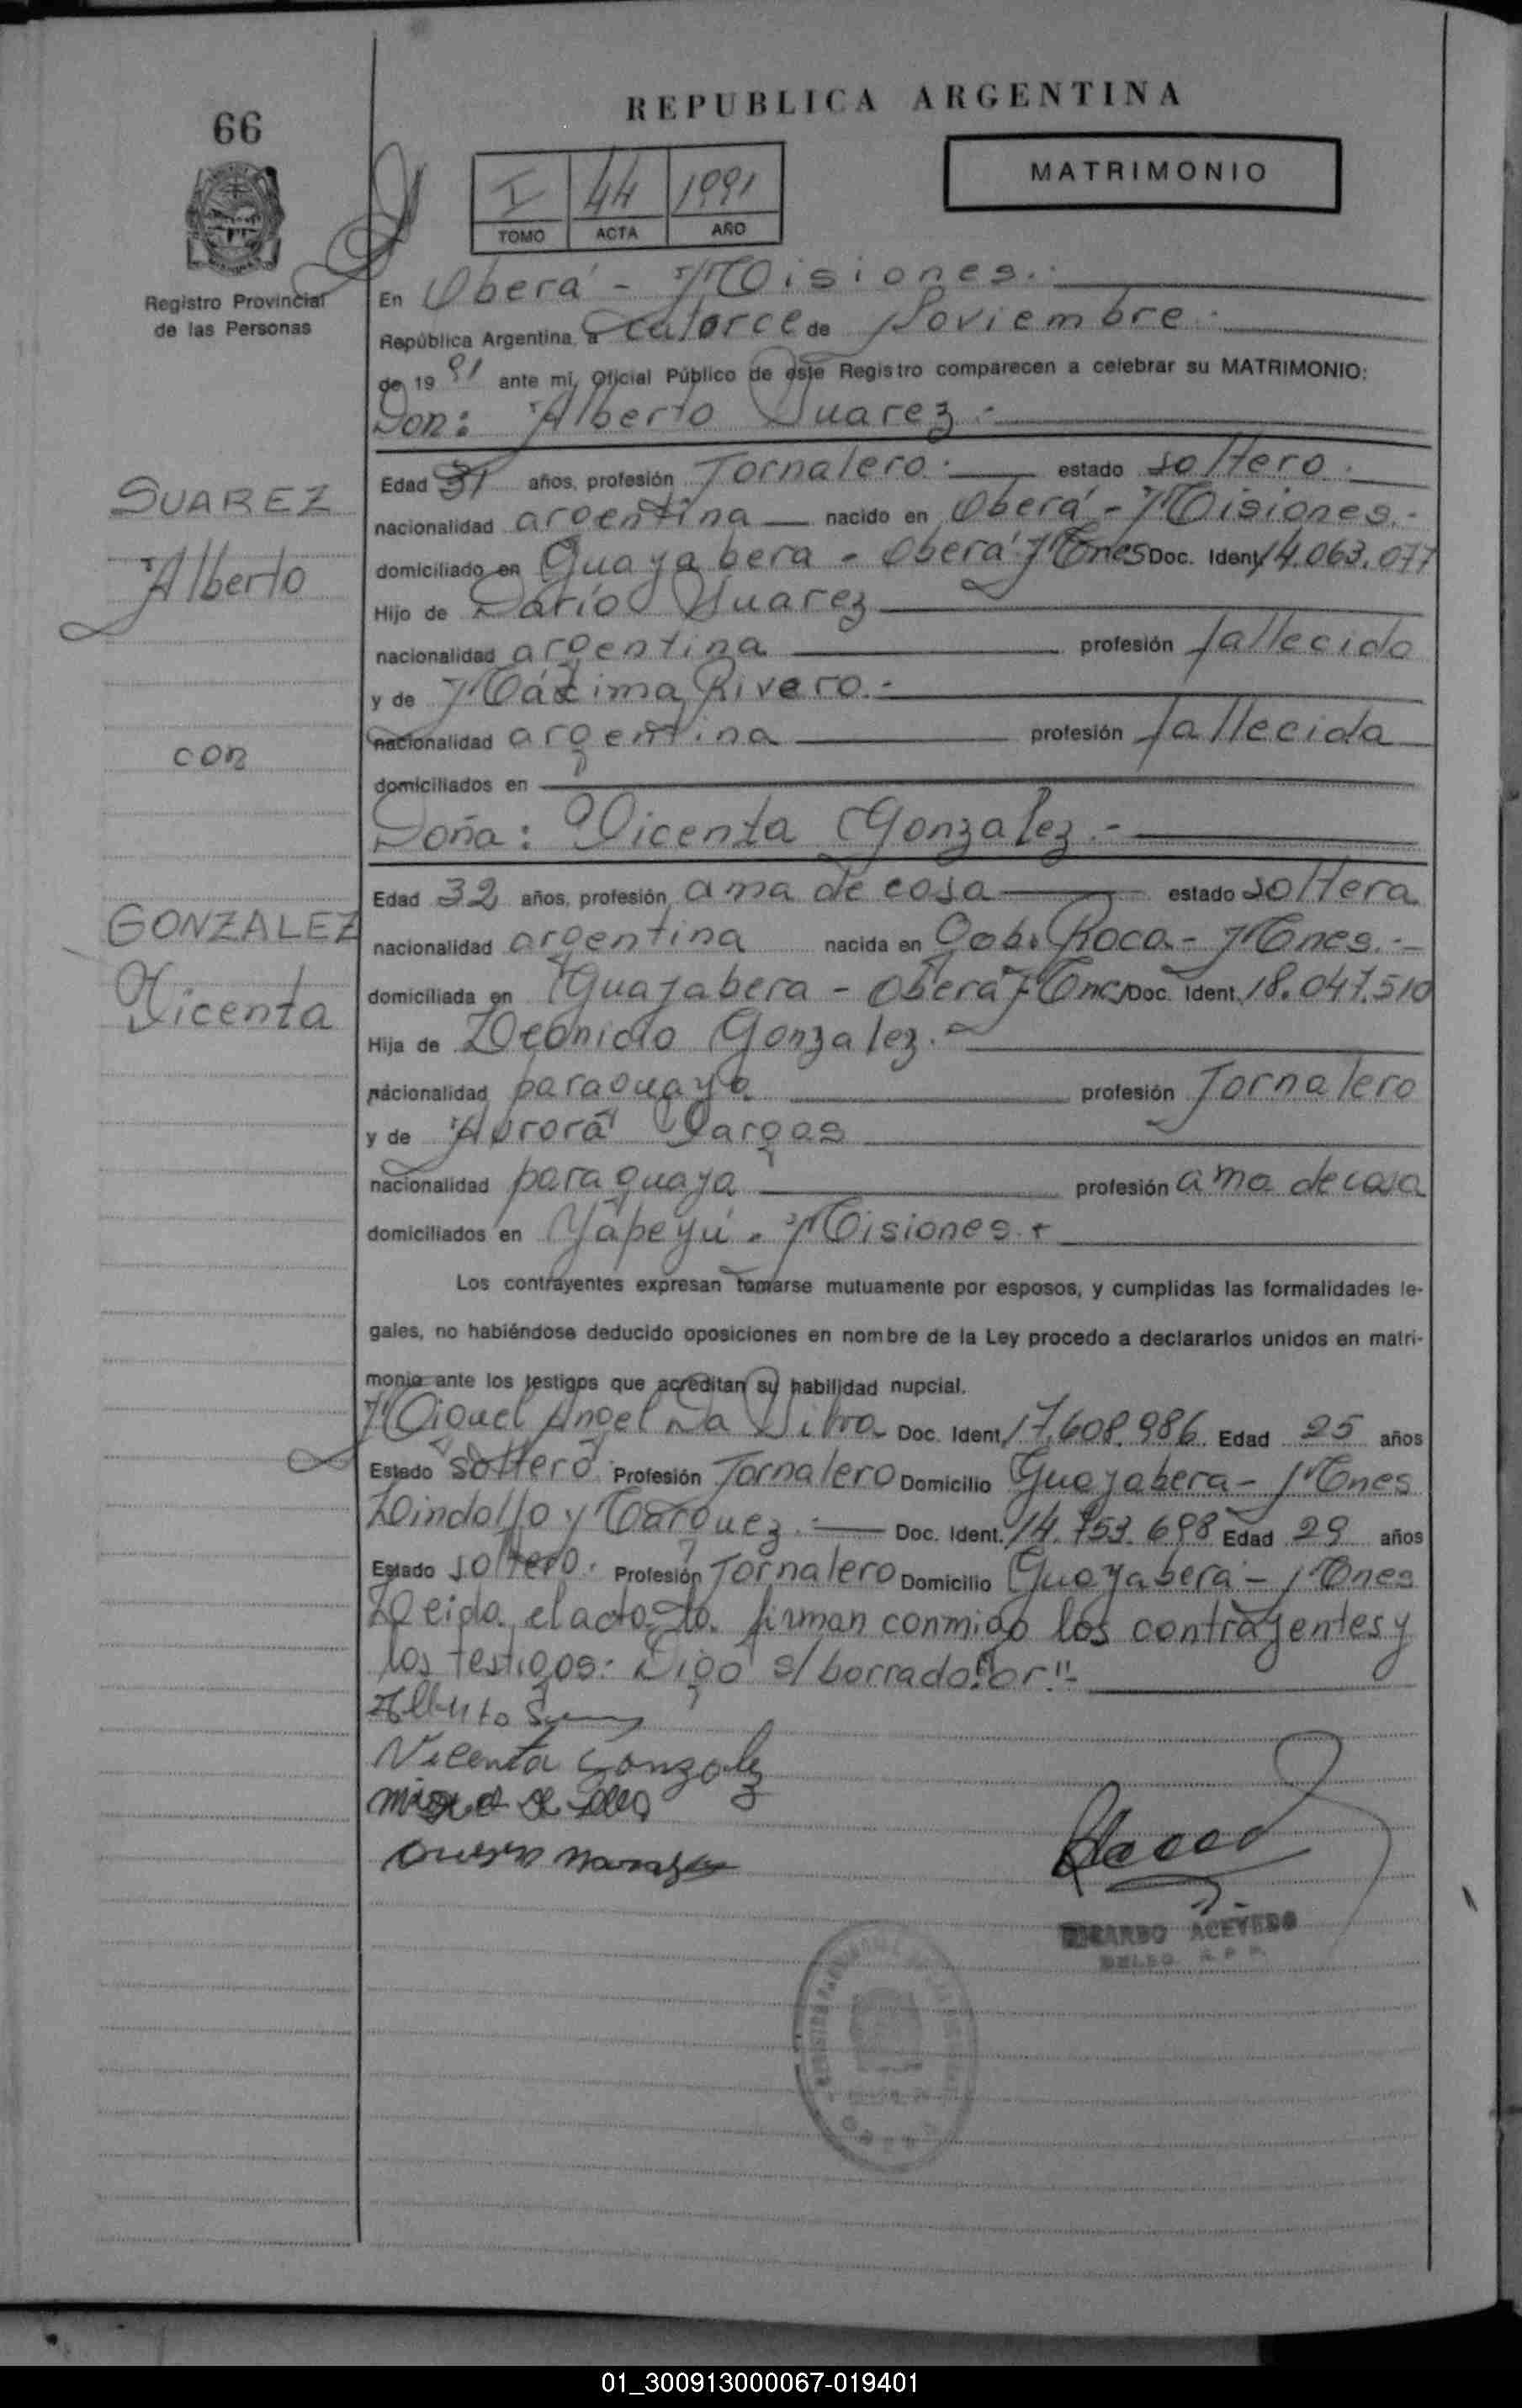 REPUBLICA ARGENTINA
66
MATRIMONIO
I 44 1991
TOMO ACTA AÑO
Registro Provincial
de las Personas
En Oberá - Misiones.-
República Argentina, a catorce de Noviembre.-
de 1991 ante mi, Oficial Público de este Registro comparecen a celebrar su MATRIMONIO:
Don: Alberto Suarez.-
SUAREZ
Alberto
con
GONZALEZ
Vicenta
Edad 31 años, profesión Jornalero.- estado soltero.
nacionalidad argentina nacido en Oberá - Misiones.-
domiciliado en Guayabera - Oberá Mnes Doc. Ident. 14.063.077
Hijo de Darío Suarez
nacionalidad argentina profesión fallecido
y de Máxima Rivero.-
nacionalidad argentina profesión fallecida
domiciliados en
Doña: Vicenta Gonzalez.-
Edad 32 años, profesión ama de casa estado soltera
nacionalidad argentina nacida en Gob. Roca - Mnes.-
domiciliada en Guayabera - Oberá Mnes Doc. Ident. 18.047.510
Hija de Leonido Gonzalez.-
nacionalidad paraguaya profesión Jornalero
y de Aurora Vargas
nacionalidad paraguaya profesión ama de casa
domiciliados en Yapeyú - Misiones.-
Los contrayentes expresan tomarse mutuamente por esposos, y cumplidas las formalidades le-
gales, no habiéndose deducido oposiciones en nombre de la Ley procedo a declararlos unidos en matri-
monio ante los testigos que acreditan su habilidad nupcial.
Miguel Angel Da Silva Doc. Ident. 17.608.986 Edad 25 años
Estado soltero Profesión Jornalero Domicilio Guayabera - Mnes
Lindolfo Marquez.- Doc. Ident. 14.753.698 Edad 29 años
Estado soltero. Profesión Jornalero Domicilio Guayabera - Mnes
Leida el acta la firman conmigo los contrayentes y
los testigos: Digo s/borrado: "or"-
Alberto
Vicenta Gonzalez
RICARDO ACEVEDO
01_300913000067-019401